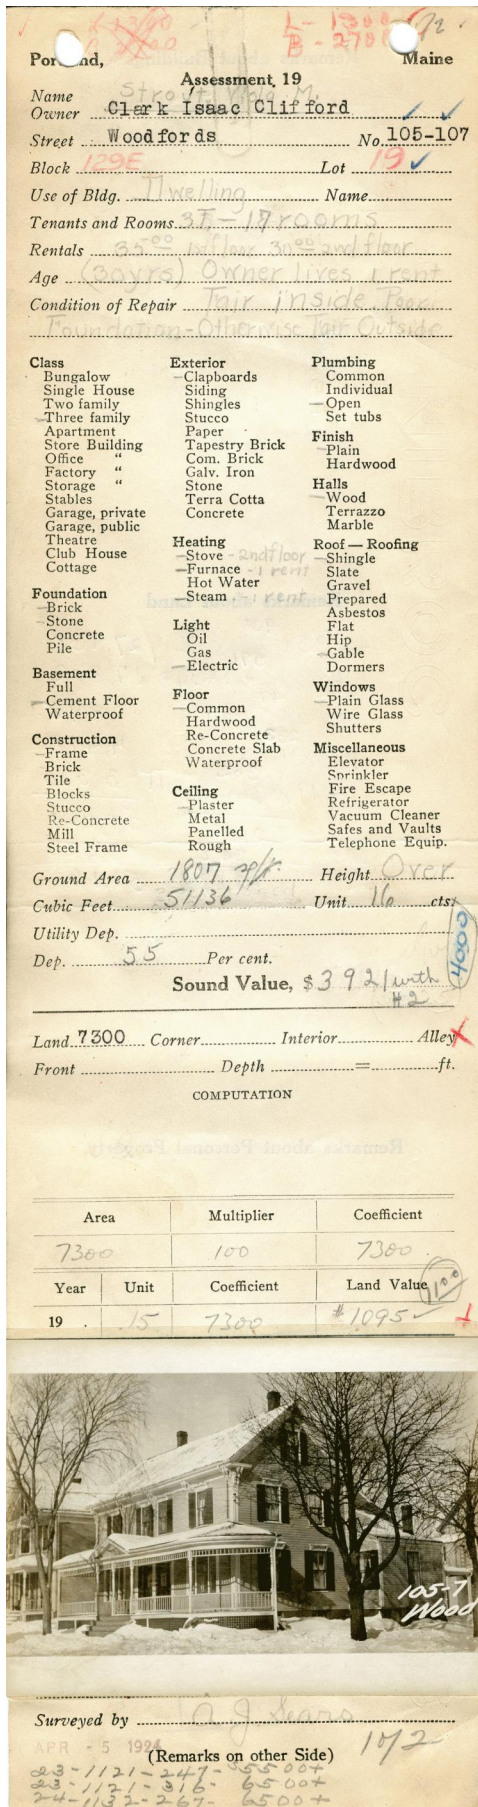 L - 1800
B - 2700
Portland, Maine
Assessment, 19
Name Strout, M.
Owner Clark Isaac Clifford
Street Woodfords No. 105-107
Block 129E Lot 19
Use of Bldg. Dwelling Name
Tenants and Rooms 3T - 17 rooms
Rentals 35.00 1st floor 30.00 2nd floor
Age (30yrs) Owner lives 1 rent
Condition of Repair Fair inside Poor
Foundation - Otherwise Fair Outside
Class
Bungalow
Single House
Two family
Three family
Apartment
Store Building
Office "
Factory "
Storage "
Stables
Garage, private
Garage, public
Theatre
Club House
Cottage
Foundation
Brick
Stone
Concrete
Pile
Basement
Full
Cement Floor
Waterproof
Construction
Frame
Brick
Tile
Blocks
Stucco
Re-Concrete
Mill
Steel Frame
Exterior
Clapboards
Siding
Shingles
Stucco
Paper
Tapestry Brick
Com. Brick
Galv. Iron
Stone
Terra Cotta
Concrete
Heating
Stove - 2nd floor
Furnace - 1 rent
Hot Water
Steam - 1 rent
Light
Oil
Gas
Electric
Floor
Common
Hardwood
Re-Concrete
Concrete Slab
Waterproof
Ceiling
Plaster
Metal
Panelled
Rough
Plumbing
Common
Individual
Open
Set tubs
Finish
Plain
Hardwood
Halls
Wood
Terrazzo
Marble
Roof — Roofing
Shingle
Slate
Gravel
Prepared
Asbestos
Flat
Hip
Gable
Dormers
Windows
Plain Glass
Wire Glass
Shutters
Miscellaneous
Elevator
Sprinkler
Fire Escape
Refrigerator
Vacuum Cleaner
Safes and Vaults
Telephone Equip.
Ground Area 1807 sq/ft. Height Over
Cubic Feet 51136 Unit 16 cts.
Utility Dep.
4000
Dep. 55 Per cent.
Sound Value, $3921 with
#2
Land 7300 Corner Interior Alley
Front Depth = ft.
COMPUTATION
Area Multiplier Coefficient
7300 100 7300
Year Unit Coefficient Land Value 1100
19 . .15 7300 #1095
105-7
Wood
Surveyed by A. J. Sears
APR - 5 1924
(Remarks on other Side) 1072
23-1121-247- 5500+
23-1121-316- 6500+
24-1132-267- 6500+